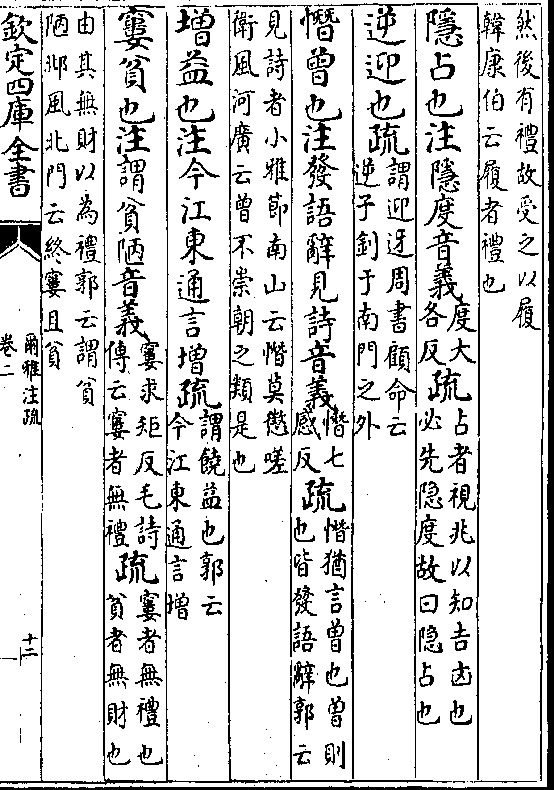 然後有禮故受之以履
韓康伯云履者禮也
隱占也注隱度音義度大各反疏占者視兆以知吉凶也必先隐度故曰隐占也
逆迎也疏謂迎迓周書顧命云逆子釗于南門之外
憯曾也注發語辭見詩音義憯七感反疏憯猶言曽也曽則也皆發語辭郭云
見詩者小雅節南山云憯莫懲嗟
衛風河廣云曾不崇朝之類是也
增益也注今江東通言增疏謂饒益也郭云今江東通言增
窶貧也注謂貧陋音義窶求矩反毛詩傳云窶者無禮疏窶者無禮也貧者無財也
由其無財以為禮郭云謂貧
陋邶風北門云終窶且貧
欽定四庫全書
爾雅注疏
卷二
十二